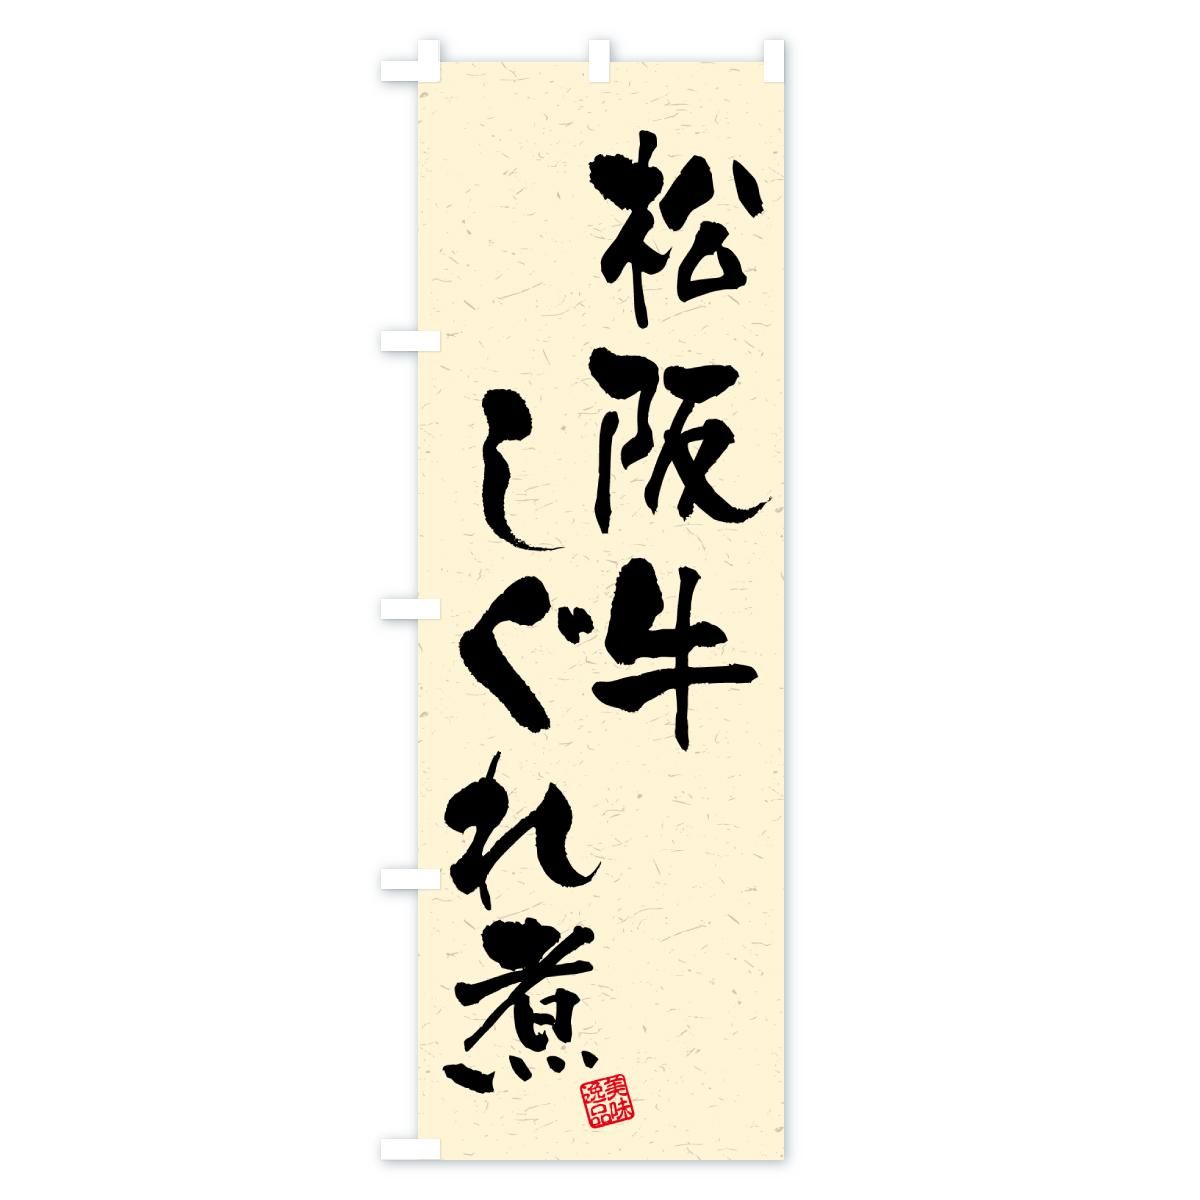 松阪牛
しぐれ煮
美味
逸品